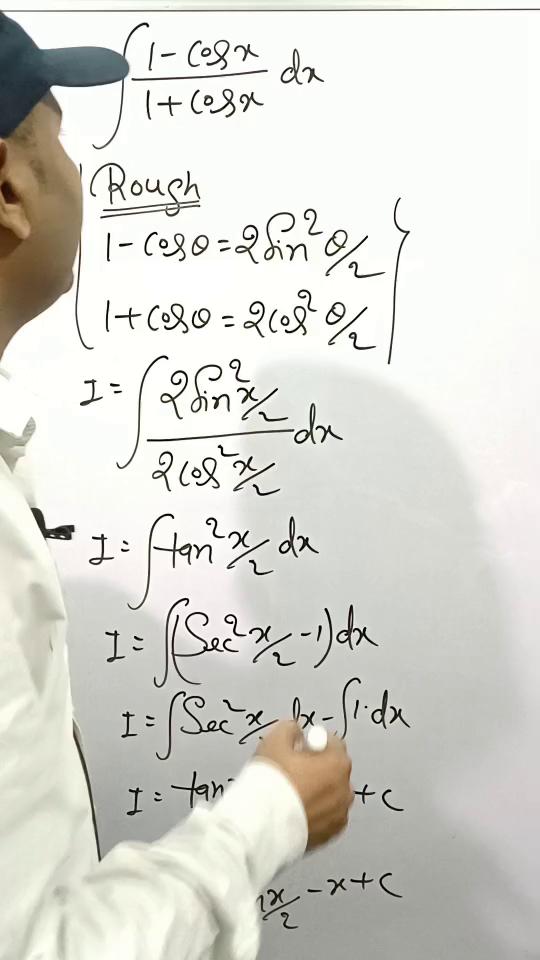 ∫ (1 - cos x)/(1 + cos x) dx
Rough
1 - cos θ = 2 sin² θ/2
1 + cos θ = 2 cos² θ/2
I = ∫ (2 sin² x/2)/(2 cos² x/2) dx
I = ∫ tan² x/2 dx
I = ∫ (Sec² x/2 - 1) dx
I = ∫ Sec² x/ dx - ∫ 1. dx
I = tan + c
x/2 - x + c